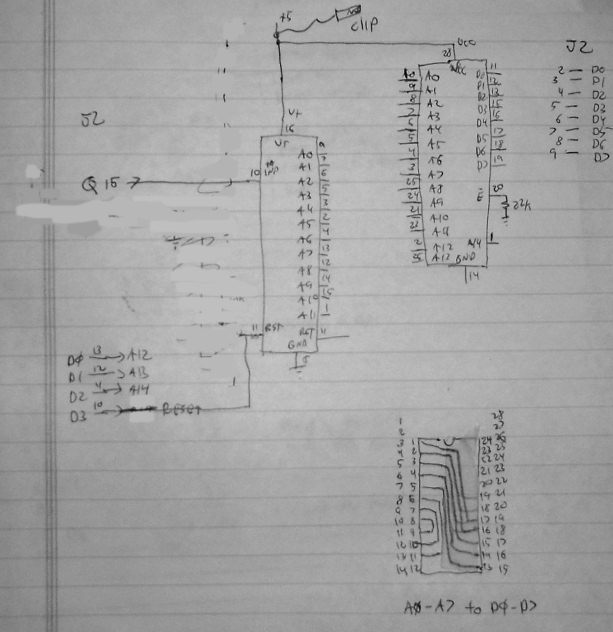 +5
CLIP
VCC
J2
28
VCC
11
2 — D0
3 — D1
4 — D2
5 — D3
6 — D4
7 — D5
8 — D6
9 — D7
A0
A1
A2
A3
A4
A5
A6
A7
A8
A9
A10
A11
A12
A13
D0
D1
D2
D3
D4
D5
D6
D7
10
9
8
7
6
5
4
3
25
24
21
23
2
26
12
13
15
16
17
18
19
E
20
22k
A14
1
GND
14
J2
V+
16
Q15
10
INP
A0
A1
A2
A3
A4
A5
A6
A7
A8
A9
A10
A11
9
7
6
5
3
2
4
13
12
14
15
1
11 RST
RST 11
GND
8
D0 13 → A12
D1 12 → A13
D2 4 → A14
D3 10 → RESET
1
2
3 1
4 2
5 3
6 4
7 5
8 6
9 7
10 8
11 9
12 10
13 11
14 12
28
27
24 26
23 25
22 24
21 23
20 22
19 21
18 20
17 19
16 18
15 17
14 16
13 15
A0-A7 to D0-D7